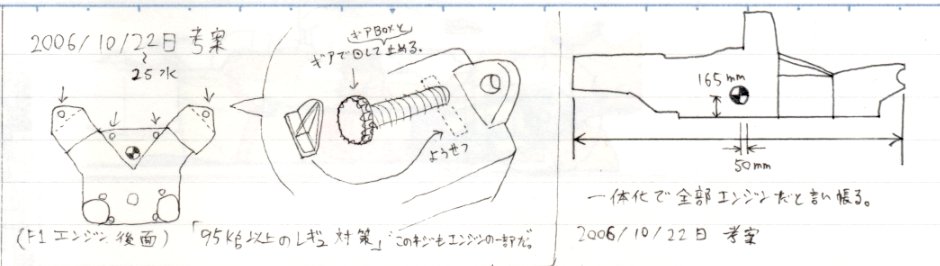 2006/10/22日 考案
25水
ギアBOXと
ギアで回して止める。
ようせつ
(F1エンジン後面)
「95kg以上のレギュ対策」このネジもエンジンの一部だ。
165mm
50mm
一体化で全部エンジンだと言い帳る。
2006/10/22日 考案